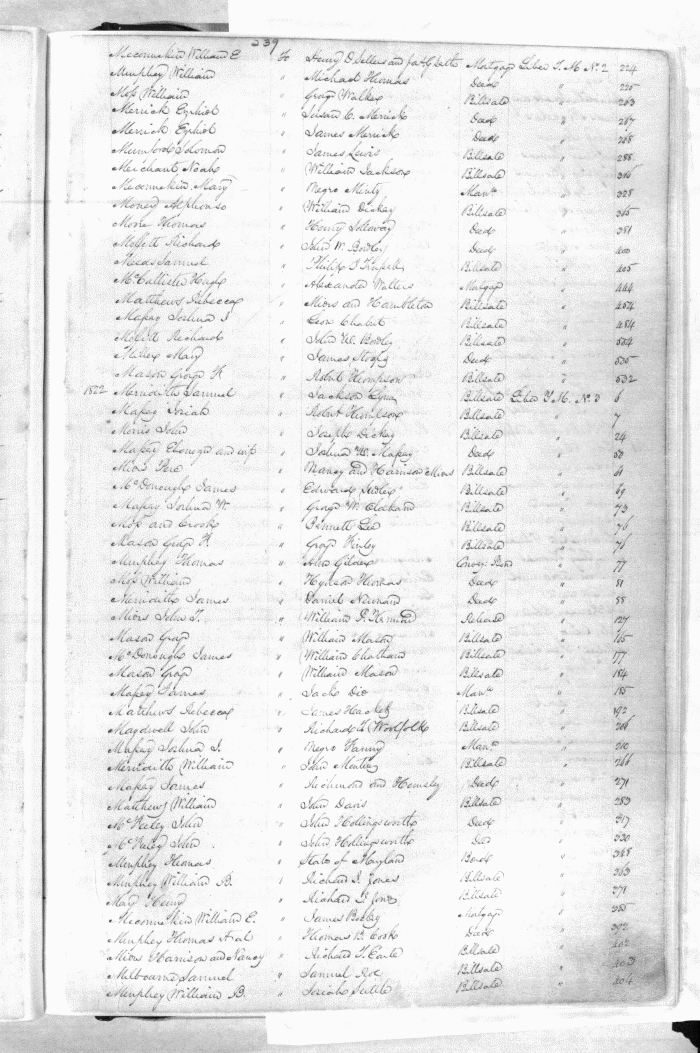 239
Meconnekin William E to Henry D Sellers and Mortgage Liber T. M. No. 2 224
Murphey William " Michael Thomas Deed " 225
Moss William " George Walker Billsale " 263
Merrick Ezphiel " Susan C. Merrick Deed " 267
Merrick Ezphiel " James Merrick Deed " 268
Mumford Solomon " James Lewis Billsale " 288
Meichant Noah " William Jackson Billsale " 316
Meconnekin Mary " Negro Minty Manu " 328
Money Alphonso " William Dickey Billsale " 365
Moore Thomas " Henry Deed " 381
Moffett Richard " John W. Bordley Deed " 400
Meeds Samuel " Philip Billsale " 405
McCallister Hugh " Alexander Walters Mortgage " 444
Matthews Rebecca " Miers and Hambleton Billsale " 454
Massey Joshua J " Billsale " 484
Moffett Richard " John W. Bordley Billsale " 504
Miller Mary " James Deed " 535
Mason George H " Robert Thompson Billsale " 532
1822 Merideth Samuel " Jackson Billsale Liber T M. No. 3 6
Massey Josiah " Robert Billsale " 7
Morris John " Joseph Dickey Billsale " 24
Massey Ebenezer and wife " Joshua W. Massey Deed " 50
Miers " Nancy and Harrison Miers Billsale " 61
McDonough James " Edward Billsale " 69
Massey Joshua W. " George W. Oldham Billsale " 73
Moss and Crooks " Bennett Lee Billsale " 76
Mason George H. " George Finley Billsale " 76
Murphey Thomas " Convey: " 77
Moss William " Hynson Thomas Deed " 81
Merideth James " Daniel Newnam Deed " 88
Miers John T. " William Release " 127
Mason George " William Mason Billsale " 165
McDonough James " William Chatham Billsale " 177
Mason George " William Mason Billsale " 184
Massey James " Jack Manu " 185
Matthews Rebecca " James Hackett Billsale " 192
Magdwell John " Richard Woolfolk Billsale " 206
Massey Joshua J. " Negro Fanny Manu " 210
Merideth William " John Billsale " 266
Massey James " Richmond and Hemsley Deed " 271
Matthews William " John Davis Billsale " 283
McNeley John " John Hollingsworth Deed " 317
McNeley John " John Hollingsworth Do " 330
Murphey Thomas " State of Maryland Bond " 348
Murphey William B. " Richard I. Jones Billsale " 363
Mary Henry " Richard I. Jones Billsale " 371
Meconnekin William E. " James Mortgage " 385
Murphey Thomas " Thomas B. Cook Deed " 392
Miers Harrison and Nancy " Richard T. Earle Billsale " 402
Melbourne Samuel " Samuel Roe Billsale " 403
Murphey William B. " Josiah Billsale " 404